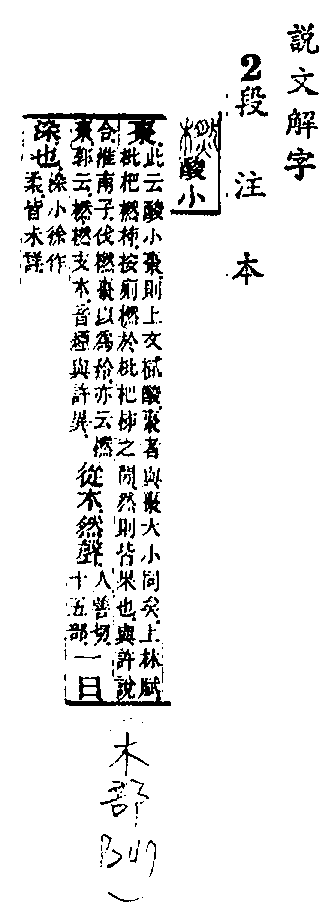 説文解字
2段注本
橪 酸小
棗 此云酸小棗則上文樲酸棗者與棗大小同矣上林賦
枇杷橪柿按廁橪於枇杷柿之閒然則皆果也與許說
合淮南子伐橪棗以爲矜亦云橪 從木然聲 人善切
棗郭云橪橪支木音煙與許異 十五部 一曰
染也 染小徐作
柔皆未詳
(木部
)